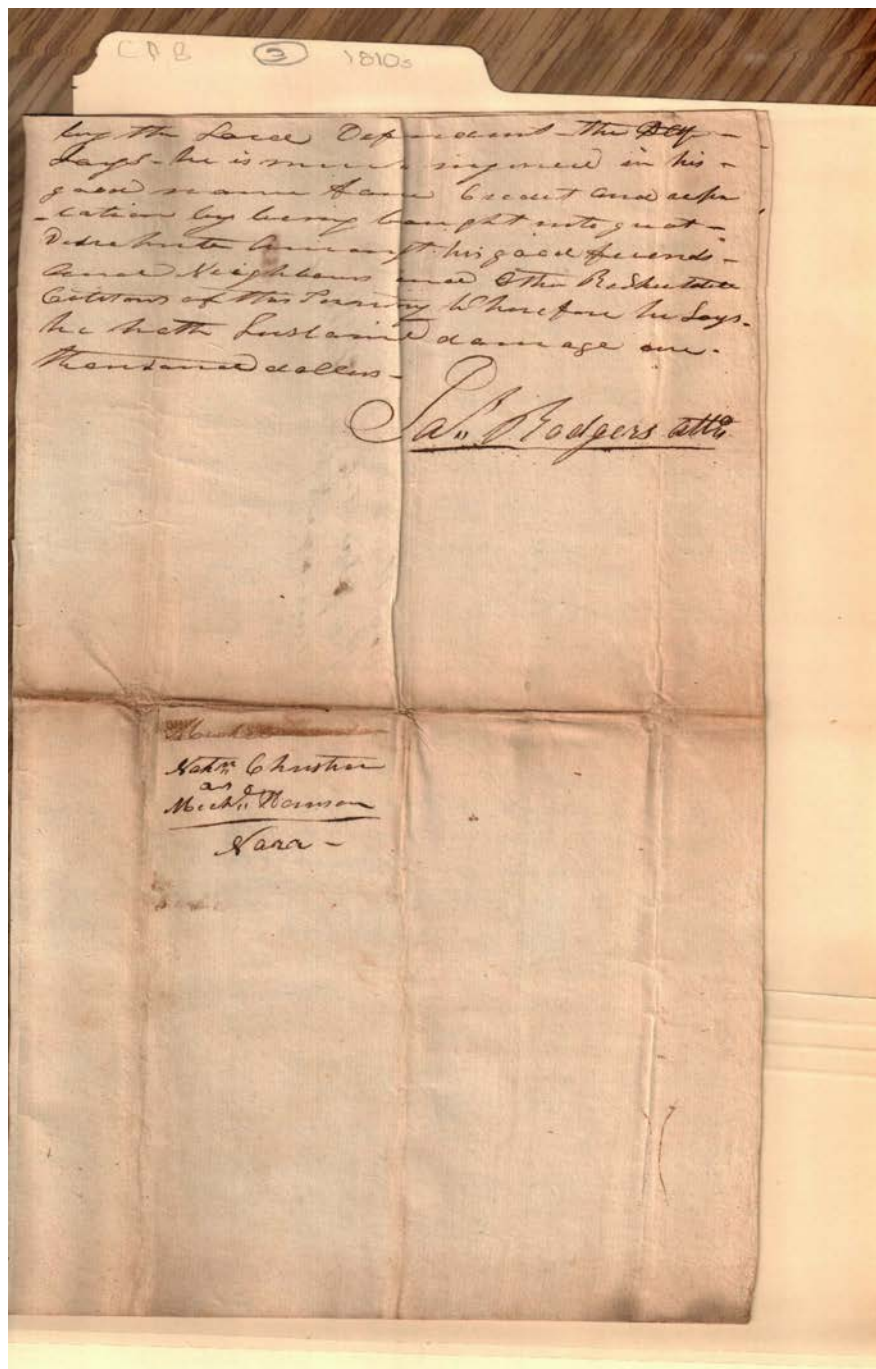 CPB ③ 1810s
by the Said Defendant - the Plff -
Says - he is much injured in his -
good name fame Credit and repu
-tation by being bought into great -
Disrepute amongst his good friends -
and Neighbours and Other Respectable
Citizens of this Territory Wherefore he Says -
he hath Sustaind damage one -
thousand dollars -
Jas. Rodgers atto
Nathn Christian
as
Michl Harrison
Narr -